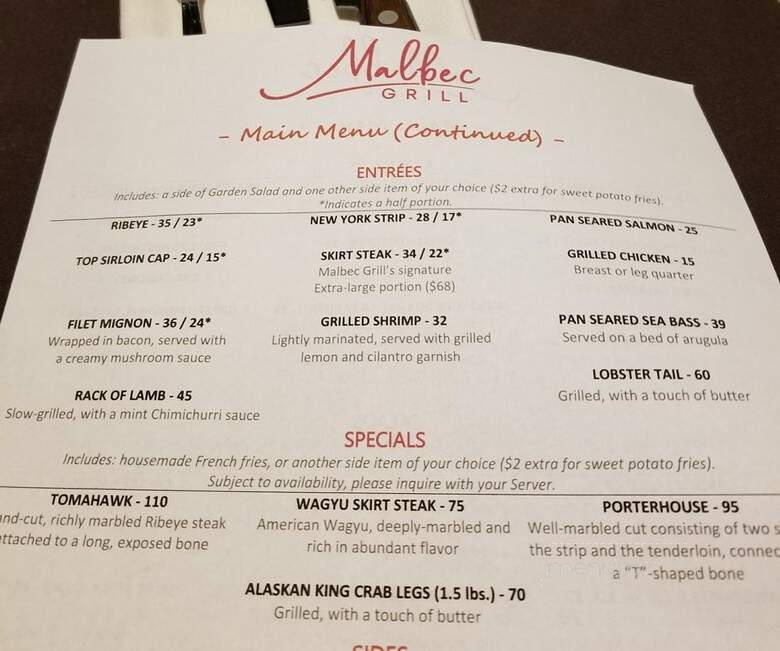 Malbec
GRILL
- Main Menu (Continued) -
ENTRÉES
Includes: a side of Garden Salad and one other side item of your choice ($2 extra for sweet potato fries).
*Indicates a half portion.
RIBEYE - 35 / 23*
NEW YORK STRIP - 28 / 17*
PAN SEARED SALMON - 25
TOP SIRLOIN CAP - 24 / 15*
SKIRT STEAK - 34 / 22*
Malbec Grill's signature
Extra-large portion ($68)
GRILLED CHICKEN - 15
Breast or leg quarter
FILET MIGNON - 36 / 24*
Wrapped in bacon, served with
a creamy mushroom sauce
GRILLED SHRIMP - 32
Lightly marinated, served with grilled
lemon and cilantro garnish
PAN SEARED SEA BASS - 39
Served on a bed of arugula
RACK OF LAMB - 45
Slow-grilled, with a mint Chimichurri sauce
LOBSTER TAIL - 60
Grilled, with a touch of butter
SPECIALS
Includes: housemade French fries, or another side item of your choice ($2 extra for sweet potato fries).
Subject to availability, please inquire with your Server.
TOMAHAWK - 110
nd-cut, richly marbled Ribeye steak
attached to a long, exposed bone
WAGYU SKIRT STEAK - 75
American Wagyu, deeply-marbled and
rich in abundant flavor
PORTERHOUSE - 95
Well-marbled cut consisting of two s
the strip and the tenderloin, connec
a "T"-shaped bone
ALASKAN KING CRAB LEGS (1.5 lbs.) - 70
Grilled, with a touch of butter
SIDES